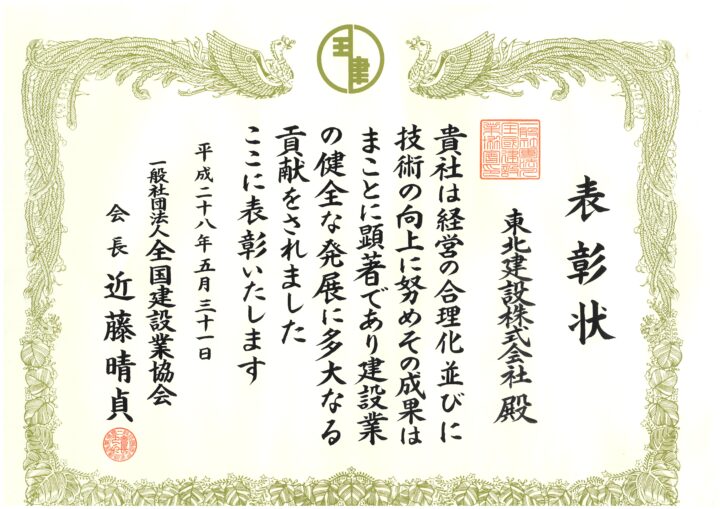 表彰状
東北建設株式会社 殿
貴社は経営の合理化並びに
技術の向上に努めその成果は
まことに顕著であり建設業
の健全な発展に多大なる
貢献をされました
ここに表彰いたします
平成二十八年五月三十一日
一般社団法人全国建設業協会
会長 近藤晴貞